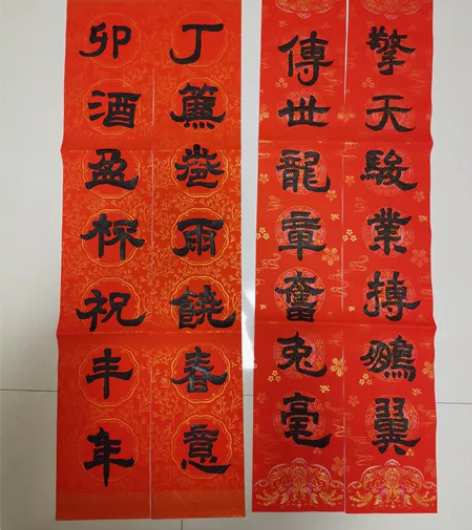 擎天駿業搏鵬翼
傳世龍章奮兔毫
丁簾卷雨饒春意
卯酒盈杯祝丰年